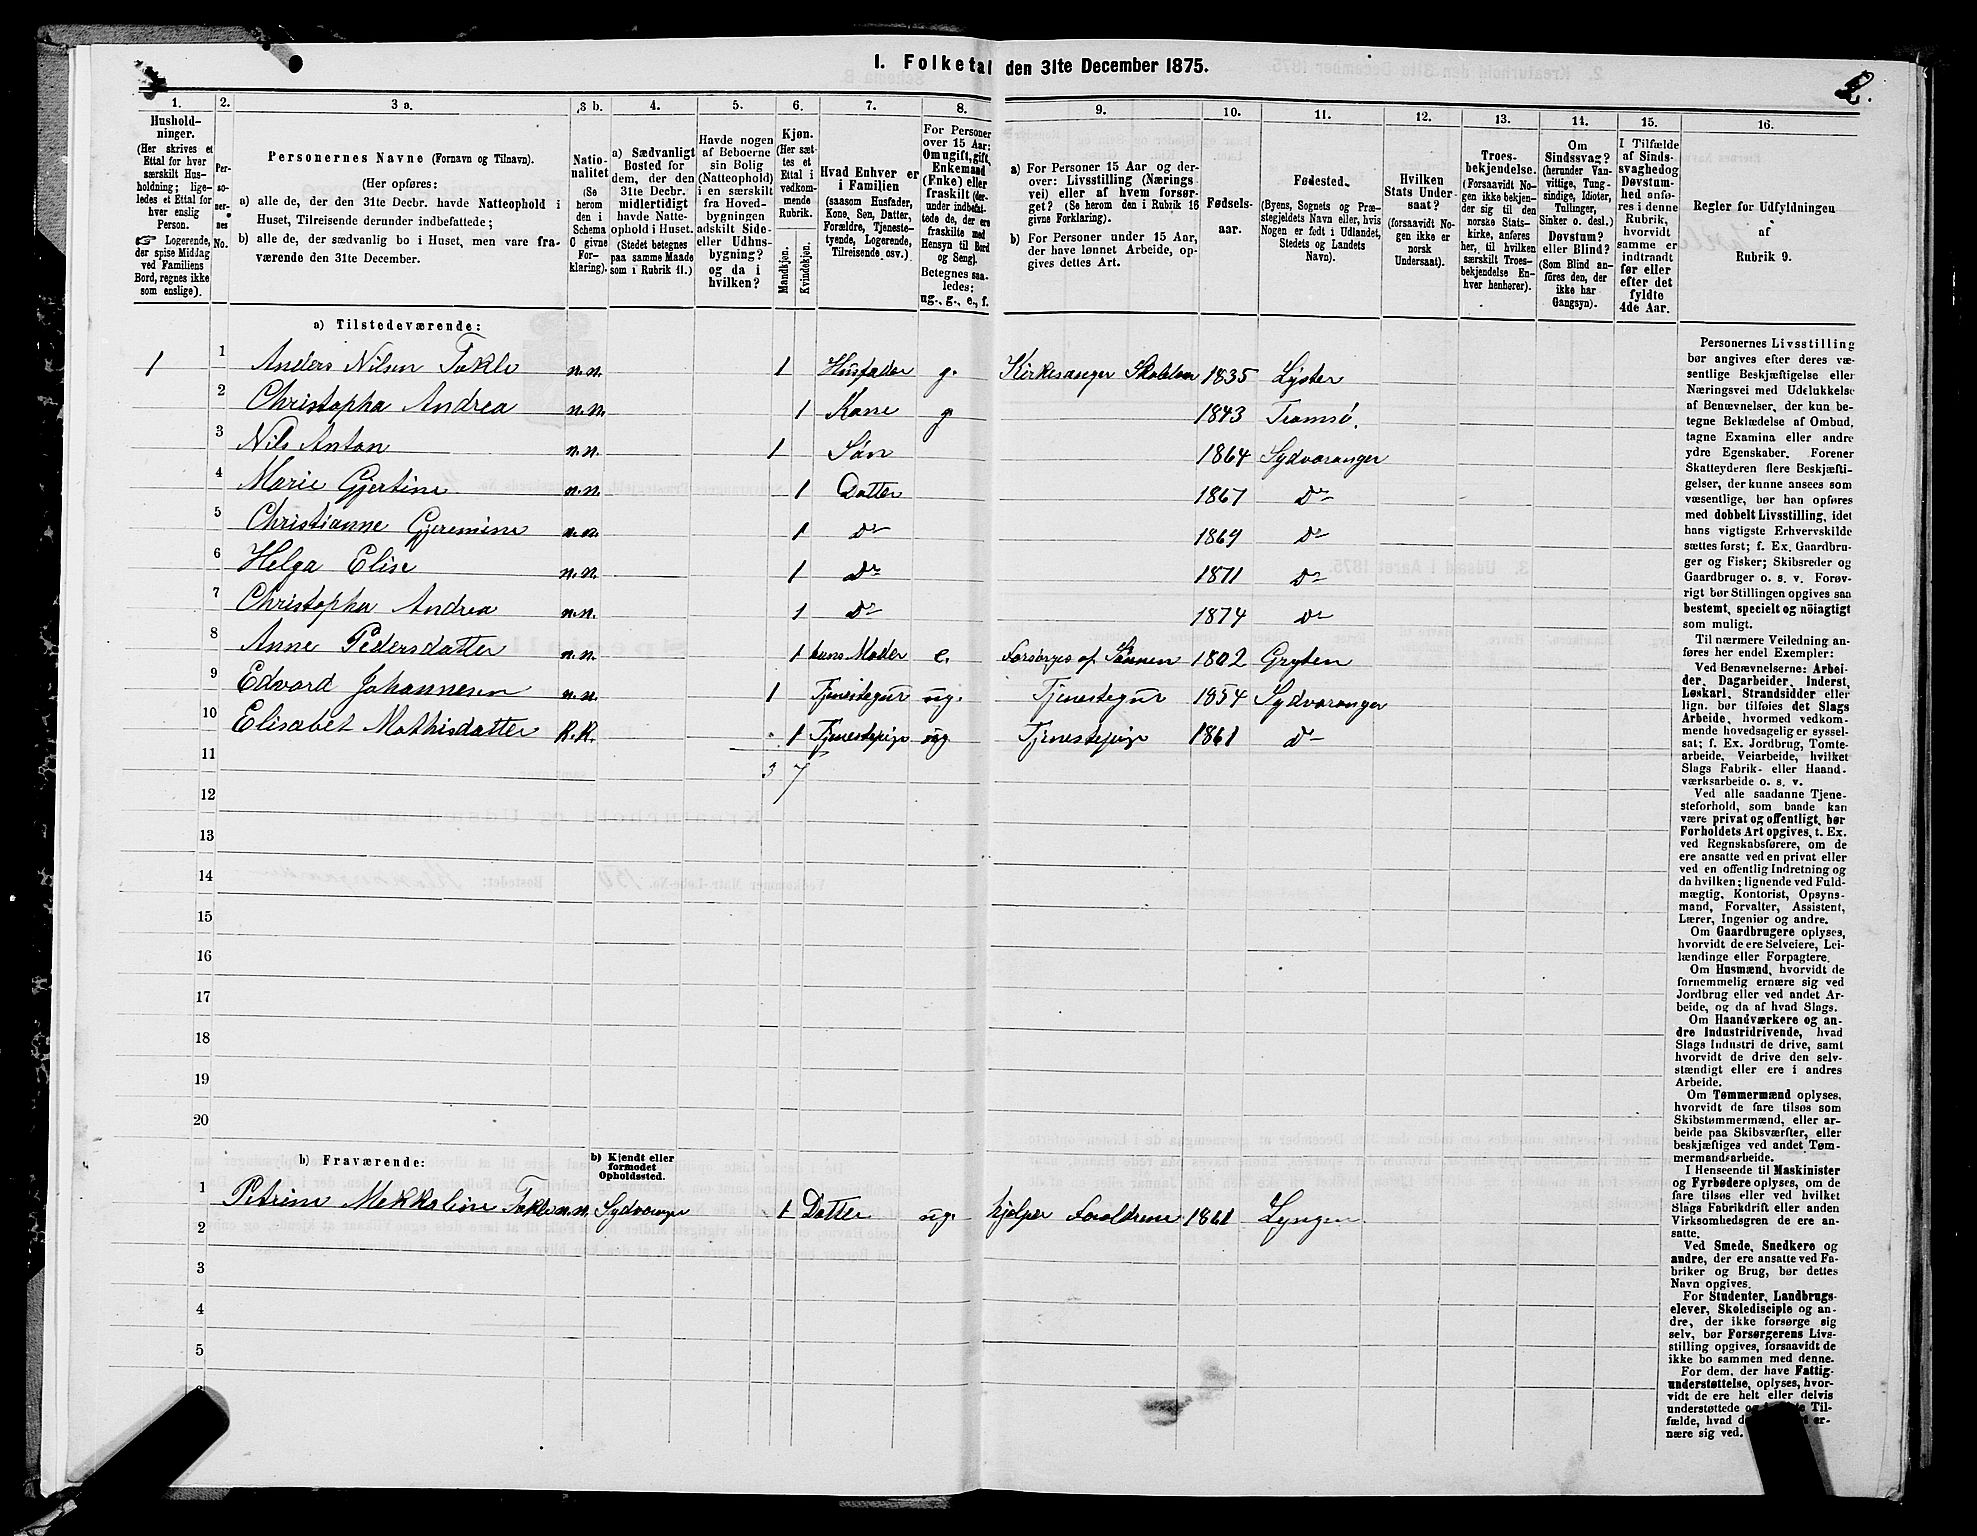 1. Folketal den 31te December 1875.
2.
1. 2. 3 a. 3 b. 4. 5. 6. 7. 8. 9. 10. 11. 12. 13. 14. 15. 16.
Hushold-
ninger.
(Her skrives et
Ettal for hver
særskilt Hus-
holdning; lige-
ledes et Ettal for
hver enslig
Person.
Logerende,
der spise Middag
ved Familiens
Bord, regnes ikke
som enslige).
Per-
so-
ner-
nes
No.
Personernes Navne (Fornavn og Tilnavn).
(Her opføres:
a) alle de, der den 31te Decbr. havde Natteophold i
Huset, Tilreisende derunder indbefattede;
b) alle de, der sædvanlig bo i Huset, men vare fra-
værende den 31te December.
Natio-
nalitet
(Se
herom
den i
Schema
C givne
For-
klaring).
a) Sædvanligt
Bosted for
dem, der den
31te Decbr.
midlertidigt
havde Natte-
ophold i Huset.
(Stedet betegnes
paa samme Maade
som i Rubrik 11.)
Havde nogen
af Beboerne
sin Bolig
(Natteophold)
i en særskilt
fra Hoved-
bygningen
adskilt Side-
eller Udhus-
bygning?
og da i
hvilken?
Kjøn.
(Her sæt-
tes et
Ettal i
vedkom-
mende
Rubrik.
Mandkjøn.
Kvindekjøn.
Hvad Enhver er
i Familien
(saasom Husfader,
Kone, Søn, Datter,
Forældre, Tjeneste-
tyende, Logerende,
Tilreisende osv.).
For Personer
over 15 Aar:
Om ugift, gift,
Enkemand
(Enke) eller
fraskilt (der-
under indbefat-
tede de, der ere
fraskilte med
Hensyn til Bord
og Seng).
Betegnes saa-
ledes:
ug., g., e., f.
a) For Personer 15 Aar og der-
over: Livsstilling (Nærings-
vei) eller af hvem forsør-
get? (Se herom den i Rubrik 16
givne Forklaring).
b) For Personer under 15 Aar,
der have lønnet Arbeide, op-
gives dettes Art.
Fødsels-
aar.
Fødested.
(Byens, Sognets og Præ-
stegjeldets Navn eller, hvis
Nogen er født i Udlandet,
Stedets og Landets
Navn).
Hvilken
Stats Under-
saat?
(forsaavidt No-
gen ikke er
norsk
Undersaat).
Troes-
bekjendelse.
(Forsaavidt No-
gen ikke bekjen-
der sig til den
norske Stats-
kirke, anføres
her, til hvilken
særskilt Troes-
bekjendelse En-
hver henhører).
Om
Sindssvag?
(herunder Van-
vittige, Tung-
sindige, Idioter,
Tullinger,
Sinker o. desl.)
Døvstum?
eller Blind?
(Som Blind an-
føres den, der
ikke har
Gangsyn).
I Tilfælde
af Sinds-
svaghed og
Døvstum-
hed anfø-
res i denne
Rubrik,
hvorvidt
samme er
indtraadt
før eller
efter det
fyldte
4de Aar.
Regler for Udfyldningen
af
Rubrik 9.
a) Tilstedeværende:
1 1 Anders Nilsen Takle n.n. 1 Husfader g. Kirkesanger Skolelær 1835 Lyster
2 Christopha Andrea n.n. 1 Kone g 1843 Tromsö.
3 Nils Anton n.n. 1 Søn 1864 Sydvaranger
4 Marie Gjertine n.n. 1 Datter 1867 do
5 Christianne Gjeremine n.n. 1 do 1869 do
6 Helga Elise n.n. 1 do 1871 do
7 Christopha Andrea n.n. 1 do 1874 do
8 Anne Pedersdatter n.n. 1 hans Moder e. Forsørges af Sønnen 1802 Gryten
9 Edvard Johannesen n.n. 1 Tjenestegut ug. Tjenestegut 1854 Sydvaranger
10 Elisabet Mathisdatter R.R. 1 Tjenestepige ug Tjenestepige 1861 do
11 3 7
12
13
14
15
16
17
18
19
20
b) Fraværende:
b) Kjendt eller
formodet
Opholdssted.
1 Petrine Mekkaline Takle n.n. Sydvaranger 1 Datter ug. hjelper Forældrene 1861 Lyngen
2
3
4
5
Personernes Livsstilling
bør angives efter deres væ-
sentlige Beskjæftigelse eller
Næringsvei med Udelukkelse
af Benævnelser, der kun be-
tegne Beklædelse af Ombud,
tagne Examina eller andre
ydre Egenskaber. Forener
Skatteyderen flere Beskjæfti-
gelser, der kunne ansees som
væsentlige, bør han opføres
med dobbelt Livsstilling, idet
hans vigtigste Erhvervskilde
sættes først; f. Ex. Gaardbru-
ger og Fisker; Skibsreder og
Gaardbruger o. s. v. Forøv-
rigt bør Stillingen opgives saa
bestemt, specielt og nöiagtigt
som muligt.
Til nærmere Veiledning an-
føres her endel Exempler:
Ved Benævnelserne: Arbei-
der, Dagarbeider, Inderst,
Løskarl, Strandsidder eller
lign. bør tilføies det Slags
Arbeide, hvormed vedkom-
mende hovedsagelig er syssel-
sat; f. Ex. Jordbrug, Tomte-
arbeide, Veiarbeide, hvilket
Slags Fabrik- eller Haand-
værksarbeide o. s. v.
Ved alle saadanne Tjene-
steforhold, som baade kan
være privat og offentligt, bør
Forholdets Art opgives, t. Ex.
ved Regnskabsførere, om de
ere ansatte ved en privat eller
ved en offentlig Indretning og
da hvilken; lignende ved Fuld-
mægtig, Kontorist, Opsyns-
mand, Forvalter, Assistent,
Lærer, Ingeniør og andre.
Om Gaardbrugere oplyses,
hvorvidt de ere Selveiere, Lei-
lændinge eller Forpagtere.
Om Husmænd, hvorvidt de
fornemmelig ernære sig ved
Jordbrug eller ved andet Ar-
beide, og da af hvad Slags.
Om Haandværkere og an-
dre Industridrivende, hvad
Slags Industri de drive, samt
hvorvidt de drive den selv-
stændigt eller ere i andres
Arbeide.
Om Tømmermænd oplyses,
hvorvidt de fare tilsøs som
Skibstømmermænd, eller ar-
beide paa Skibsværfter, eller
beskjæftiges ved andet Tøm-
mermandsarbeide.
I Henseende til Maskinister
og Fyrbødere oplyses, om de
fare tilsøs eller ved hvilket
Slags Fabrikdrift eller anden
Virksomhedsgren de ere an-
satte.
Ved Smede, Snedkere og
andre, der ere ansatte ved Fa-
briker og Brug, bør dettes
Navn opgives.
For Studenter, Landbrugs-
elever, Skoledisciple og an-
dre, der ikke forsørge sig
selv, bør Forsørgerens Livs-
stilling opgives, forsaavidt de
ikke bo sammen med denne.
For dem, der have Fattig-
understøttelse, oplyses, hvor-
vidt de ere helt eller delvis
understøttede Til-
fælde, hvad er-
nære sig ved.